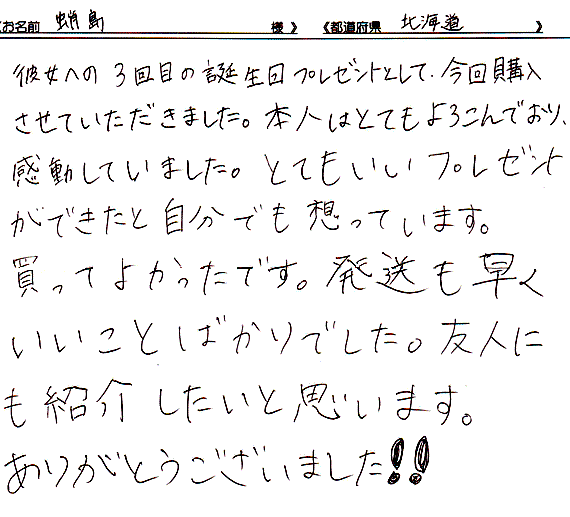 《お名前 蛸島 様》 《都道府県 北海道 》
彼女への3回目の誕生日プレゼントとして、今回購入
させていただきました。本人はとてもよろこんでおり、
感動していました。とてもいいプレゼント
ができたと自分でも想っています。
買ってよかったです。発送も早く
いいことばかりでした。友人に
も紹介したいと思います。
ありがとうございました!!